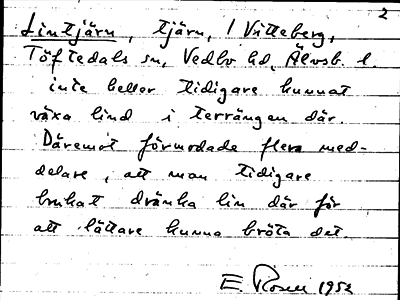 2
Lintjärn, tjärn, / Vitteberg,
Töftedals sn, Vedbo hd, Älvsb. l.
inte heller tidigare kunnat
växa lind i terrängen där.
Däremot förmodade flera med-
delare, att man tidigare
brukat dränka lin där för
att lättare kunna bröta det.
E. Rosen 1953